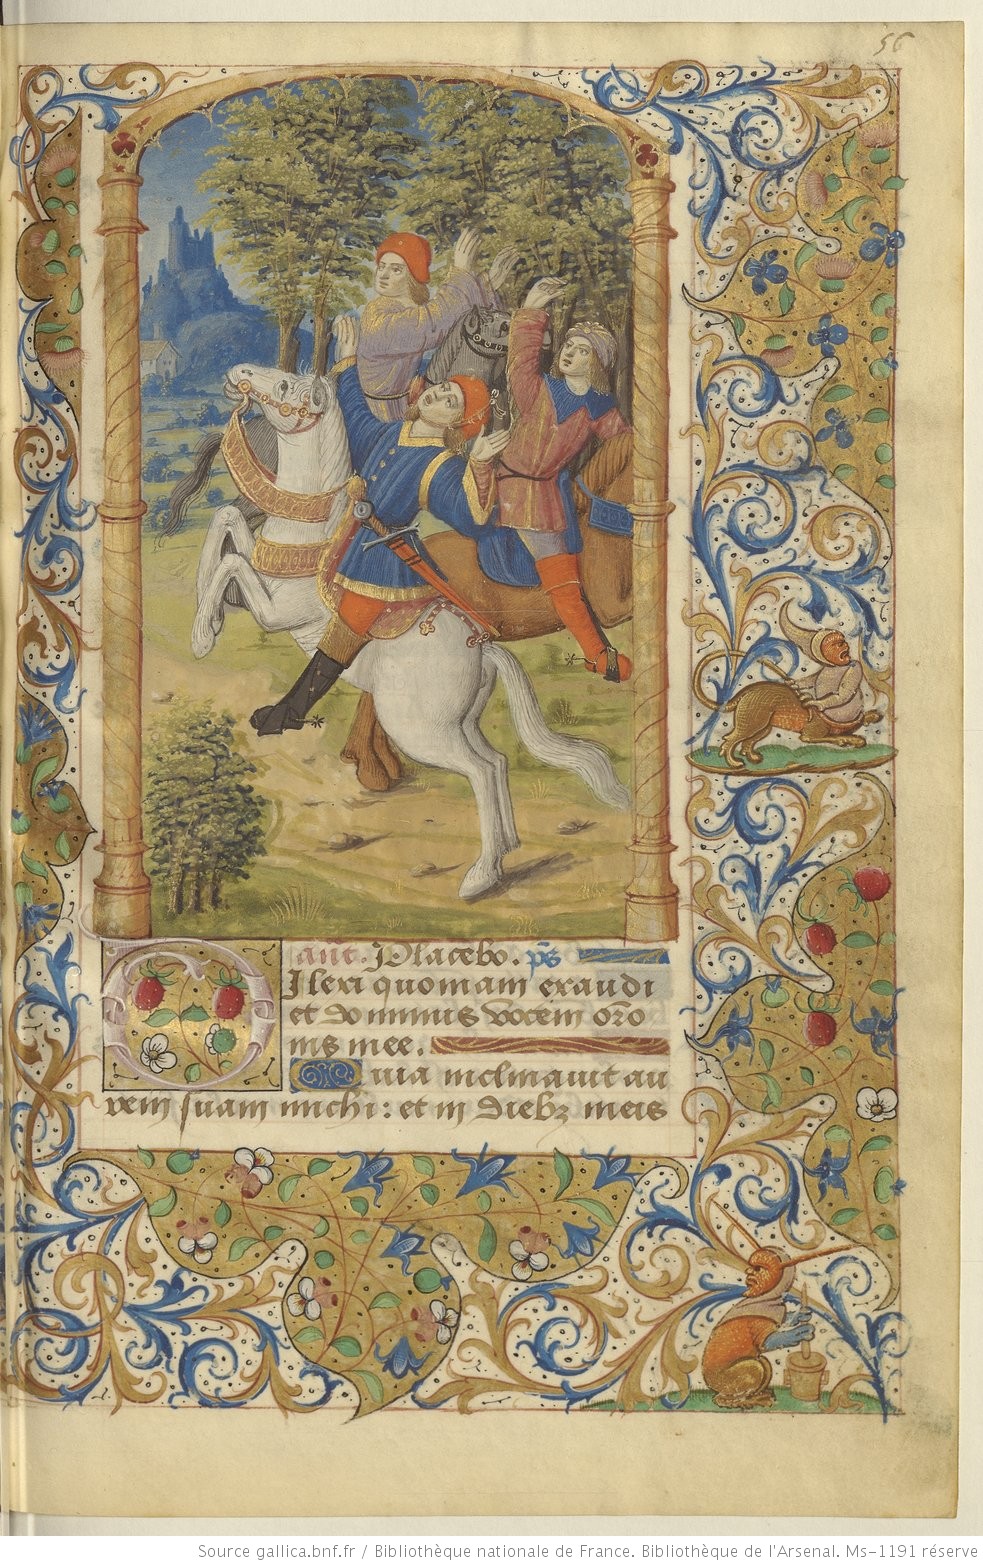 56
ant. Placebo. ps
Dilexi quoniam exaudi
et dominus vocem oro
nis mee.
Quia inclinavit au
rem suam michi: et in diebz meis
Source gallica.bnf.fr / Bibliothèque nationale de France. Bibliothèque de l'Arsenal. Ms-1191 réserve